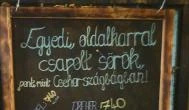 Egyedi, oldalkarral
csapolt sörök,
pont mint Csehországban!
DREHER 740